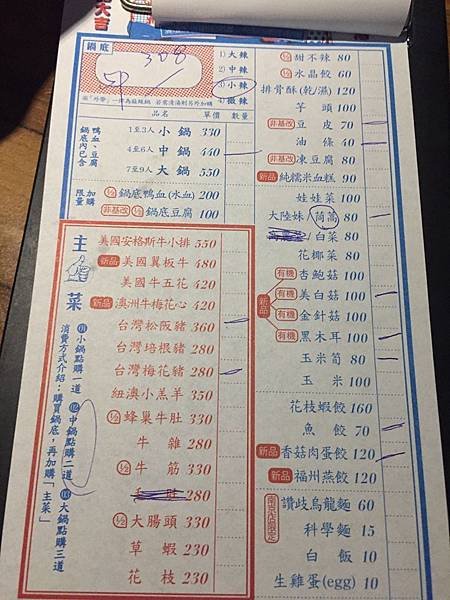 大吉
鍋底
308
中
1) 大辣
2) 中辣
3) 小辣
4) 微辣
品名 單價 數量
鍋底內已含 鴨血、豆腐
1至3人 小鍋 330
4至6人 中鍋 440
7至9人 大鍋 550
加購限量
(1/2) 鍋底鴨血(水血) 200
非基改 (1/2) 鍋底豆腐 100
主菜
01 小鍋點購一道 02 中鍋點購二道 03 大鍋點購三道
消費方式介紹:購買鍋底,再加購「主菜」
美國安格斯牛小排 550
新品 美國翼板牛 480
美國牛五花 420
新品 澳洲牛梅花心 420
台灣松阪豬 360
台灣培根豬 280
台灣梅花豬 280
紐澳小羔羊 350
(1/2) 蜂巢牛肚 330
牛雜 280
(1/2) 牛筋 330
280
(1/2) 大腸頭 330
草蝦 230
花枝 230
(1/2) 甜不辣 80
(1/2) 水晶餃 60
排骨酥(乾/濕) 120
芋頭 100
非基改 豆皮 70
油條 40
非基改 凍豆腐 80
新品 純糯米血糕 90
娃娃菜 100
大陸妹/茼蒿 80
/白菜 80
花椰菜 80
新品
有機 杏鮑菇 100
有機 美白菇 100
有機 金針菇 100
有機 黑木耳 100
玉米筍 80
玉米 100
花枝蝦餃 160
魚餃 70
新品 香菇肉蛋餃 120
新品 福州燕餃 120
南京店限定
讚歧烏龍麵 60
科學麵 15
白飯 10
生雞蛋(egg) 10